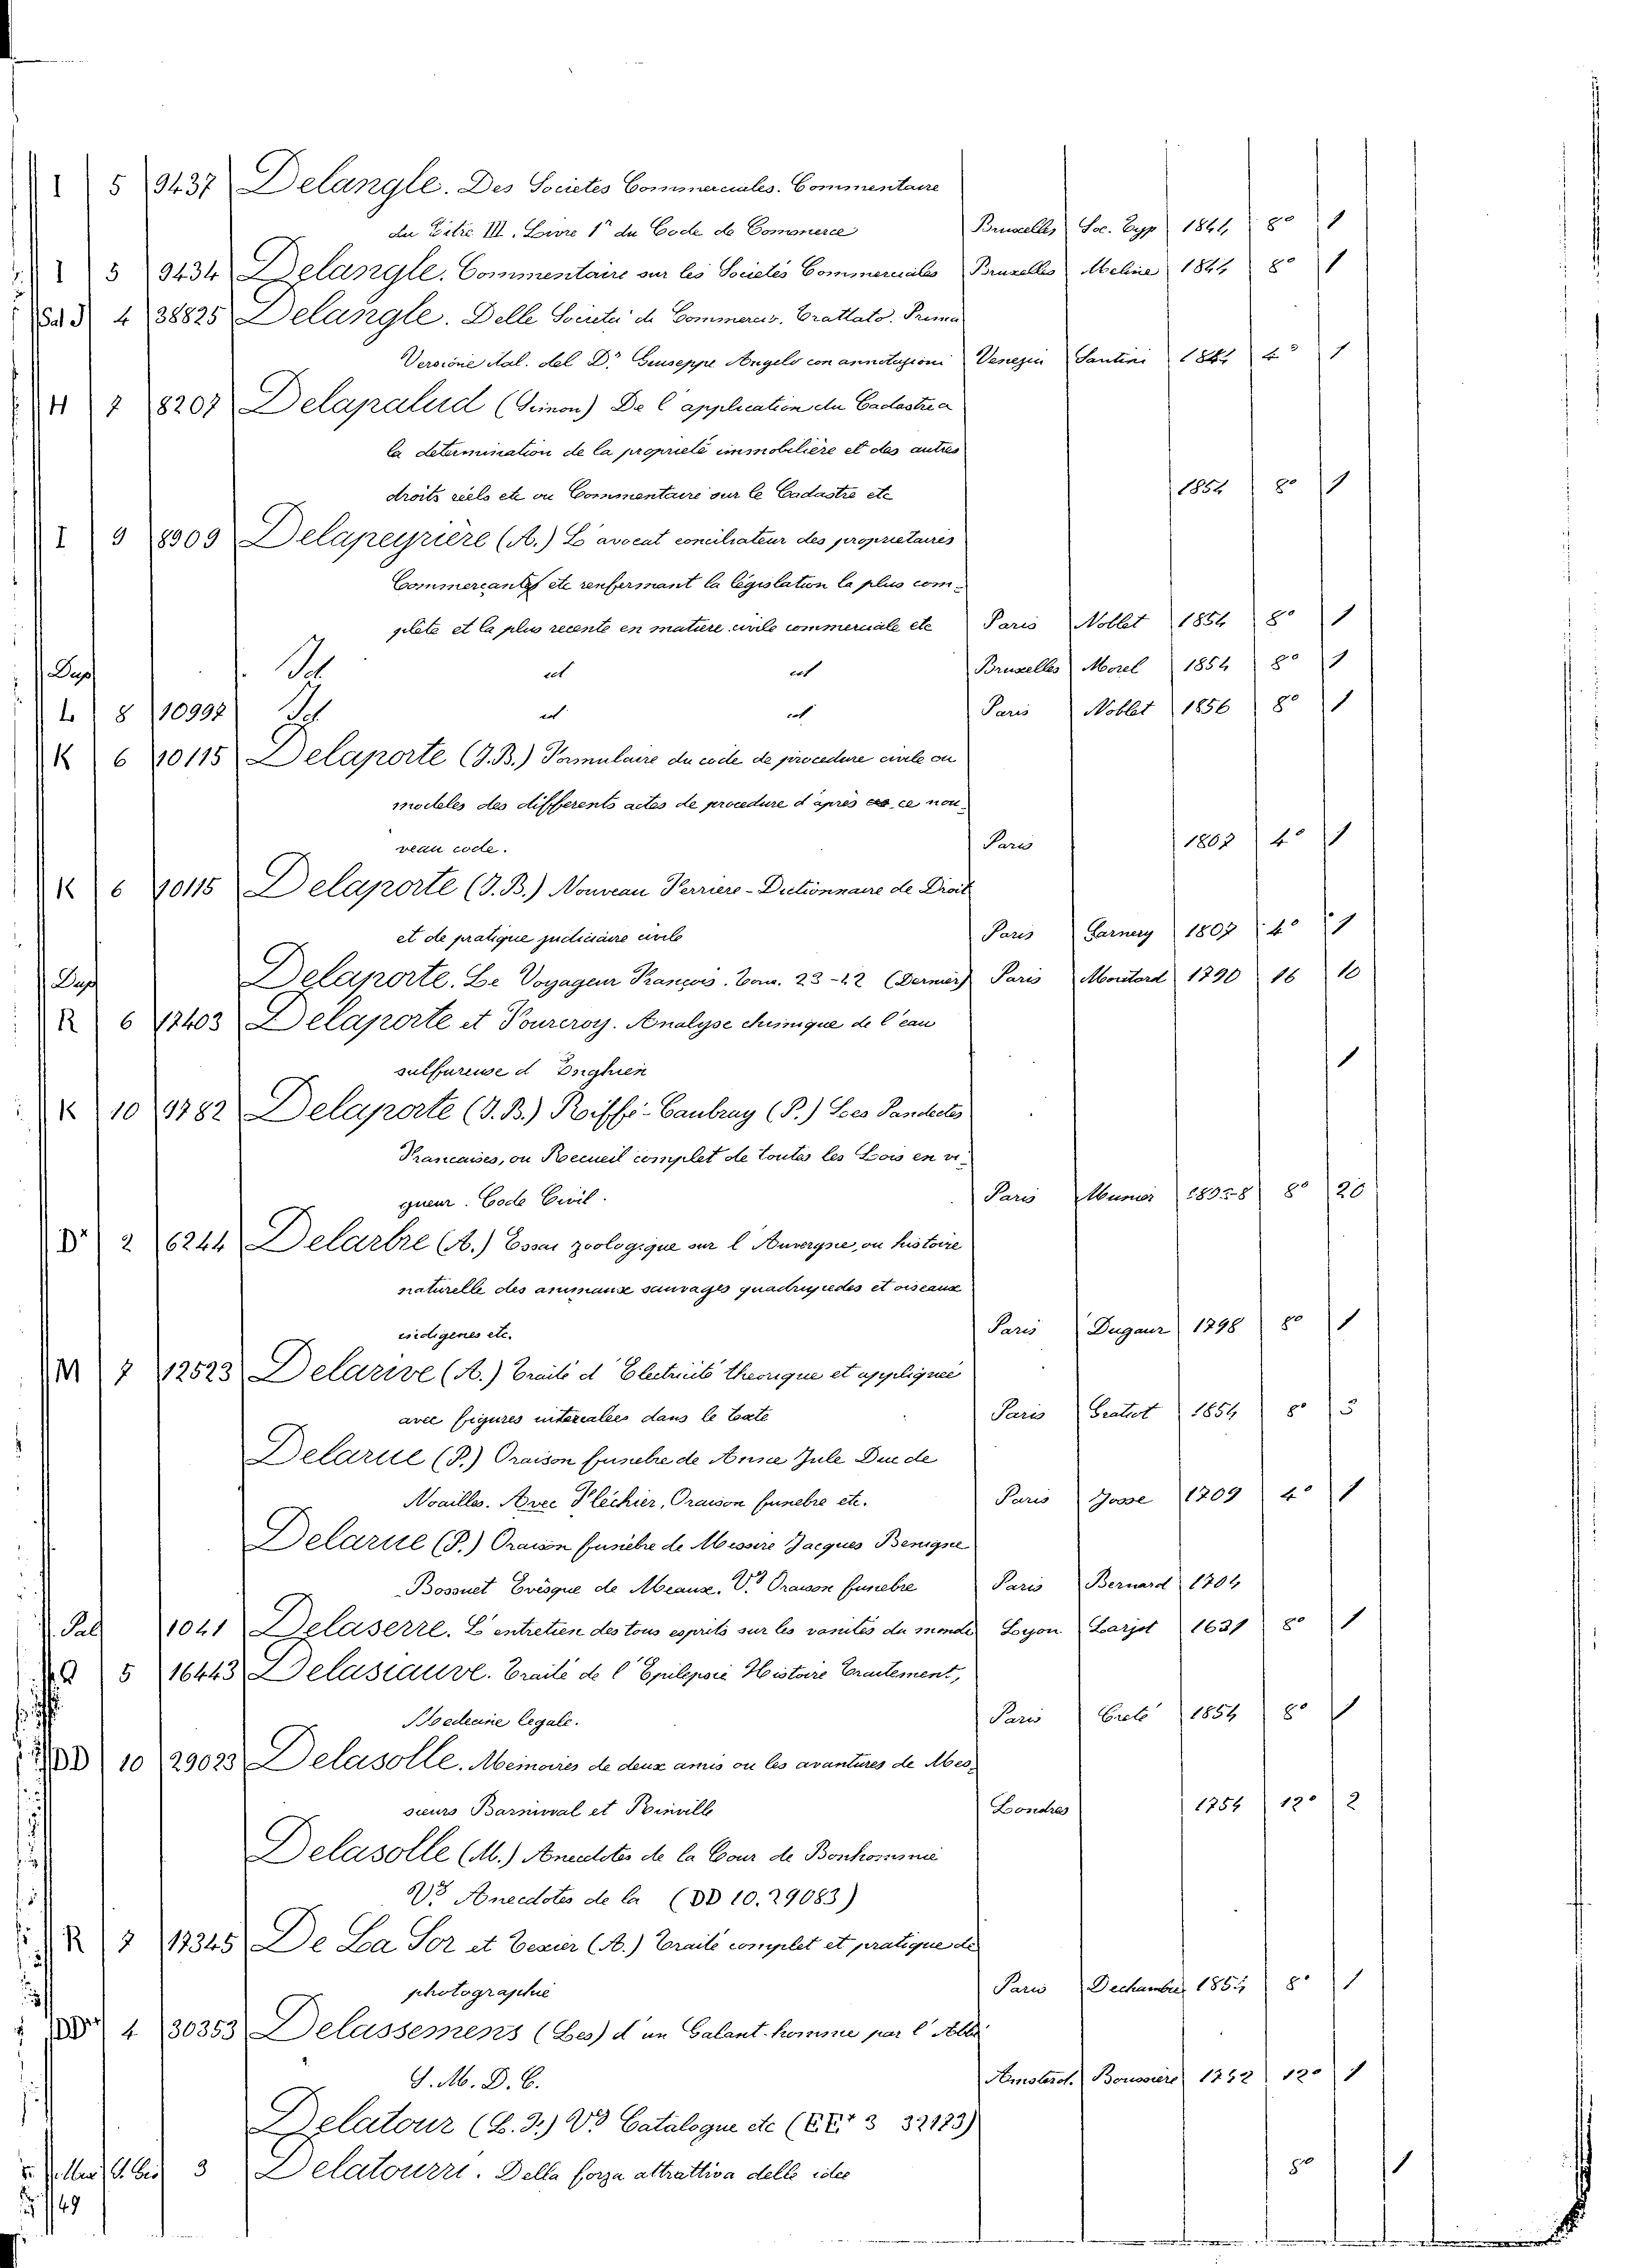 I 5 9437 Delangle. Des Societes Commerciales. Commentaire
du Titre III. Livre 1r du Code de Commerce Bruxelles Soc. Typ 1844 8o 1
I 5 9434 Delangle. Commentaire sur les Societés Commerciales Bruxelles Meline 1844 8o 1
4 38825 Delangle. Delle Società di Commercio. Trattato. Prima
Versione ital. del Dr Giuseppe Angelo con annotazioni Venezia Santini 4o 1
H 7 8207 Delapalud (Simon) De l'application du Cadastre a
la determination de la proprieté immobilière et des autres
droits réels etc ou Commentaire sur le Cadastre etc 1854 8o 1
I 9 8909 Delapeyrière (A.) L'avocat conciliateur des proprietaires
Commerçants etc renfermant la législation la plus com-
plete et la plus recente en matiere civile commerciale etc Paris Noblet 1854 8o 1
Dup Id id id Bruxelles Morel 1854 8o 1
L 8 10997 Id id id Paris Noblet 1856 8o 1
K 6 10115 Delaporte (J.B.) Formulaire du code de procedure civile ou
modeles des differents actes de procedure d'après ce nou-
veau code. Paris 1807 4o 1
K 6 10115 Delaporte (J.B.) Nouveau Ferriere-Dictionnaire de Droit
et de pratique judiciaire civile Paris Garnery 1807 4o 1
Dup Delaporte. Le Voyageur François. Tom. 23-42 (Dernier) Paris Moutard 1790 16 10
R 6 17403 Delaporte et Fourcroy. Analyse chimique de l'eau
sulfureuse d'Enghien 1
K 10 9782 Delaporte (J.B.) Roiffé-Caubray (P.) Les Pandectes
Francaises, ou Recueil complet de toutes les Lois en vi-
gueur. Code Civil. Paris 8o 20
D' 2 6244 Delarbre (A.) Essai zoologique sur l'Auvergne, ou histoire
naturelle des animaux sauvages quadrupedes et oiseaux
indigenes etc. Paris Dugaur 1798 8o 1
M 7 12523 Delarive (A.) Traité d'Electricité theorique et appliquée
avec figures intercalées dans le texte Paris Gratiot 1854 8o 3
Delarue (P.) Oraison funebre de Anne Jule Duc de
Noailles. Avec Fléchier, Oraison funebre etc. Paris Josse 1709 4o 1
Delarue (P.) Oraison funèbre de Messire Jacques Benigne
Bossuet Evèsque de Meaux. Vo Oraison funebre Paris Bernard 1704
Pal 1041 Delaserre. L'entretien des tous esprits sur les vanités du monde Lyon Larjot 1631 8o 1
Q 5 16443 Delasiauve. Traité de l'Epilepsie Histoire Traitement,
Medecine legale. Paris Creté 1854 8o 1
DD 10 29023 Delasolle. Memoires de deux amis ou les avantures de Mes-
sieurs Barnival et Rinville Londres 1754 12o 2
Delasolle (M.) Anecdotes de la Cour de Bonhommie
Vo Anecdotes de la (DD 10. 29083)
R 7 17345 De La Sor et Texier (A.) Traité complet et pratique de
photographie Paris Dechambre 8o 1
4 30353 Delassemens (Les) d'un Galant-homme par l'Abbé
J. M. D. C. Amsterd. Boussiere 12o 1
Delatour (L. F.) Vo Catalogue etc (EE+ 3 32173)
3 Delatourri. Della forza attrattiva delle idee 8o 1
49